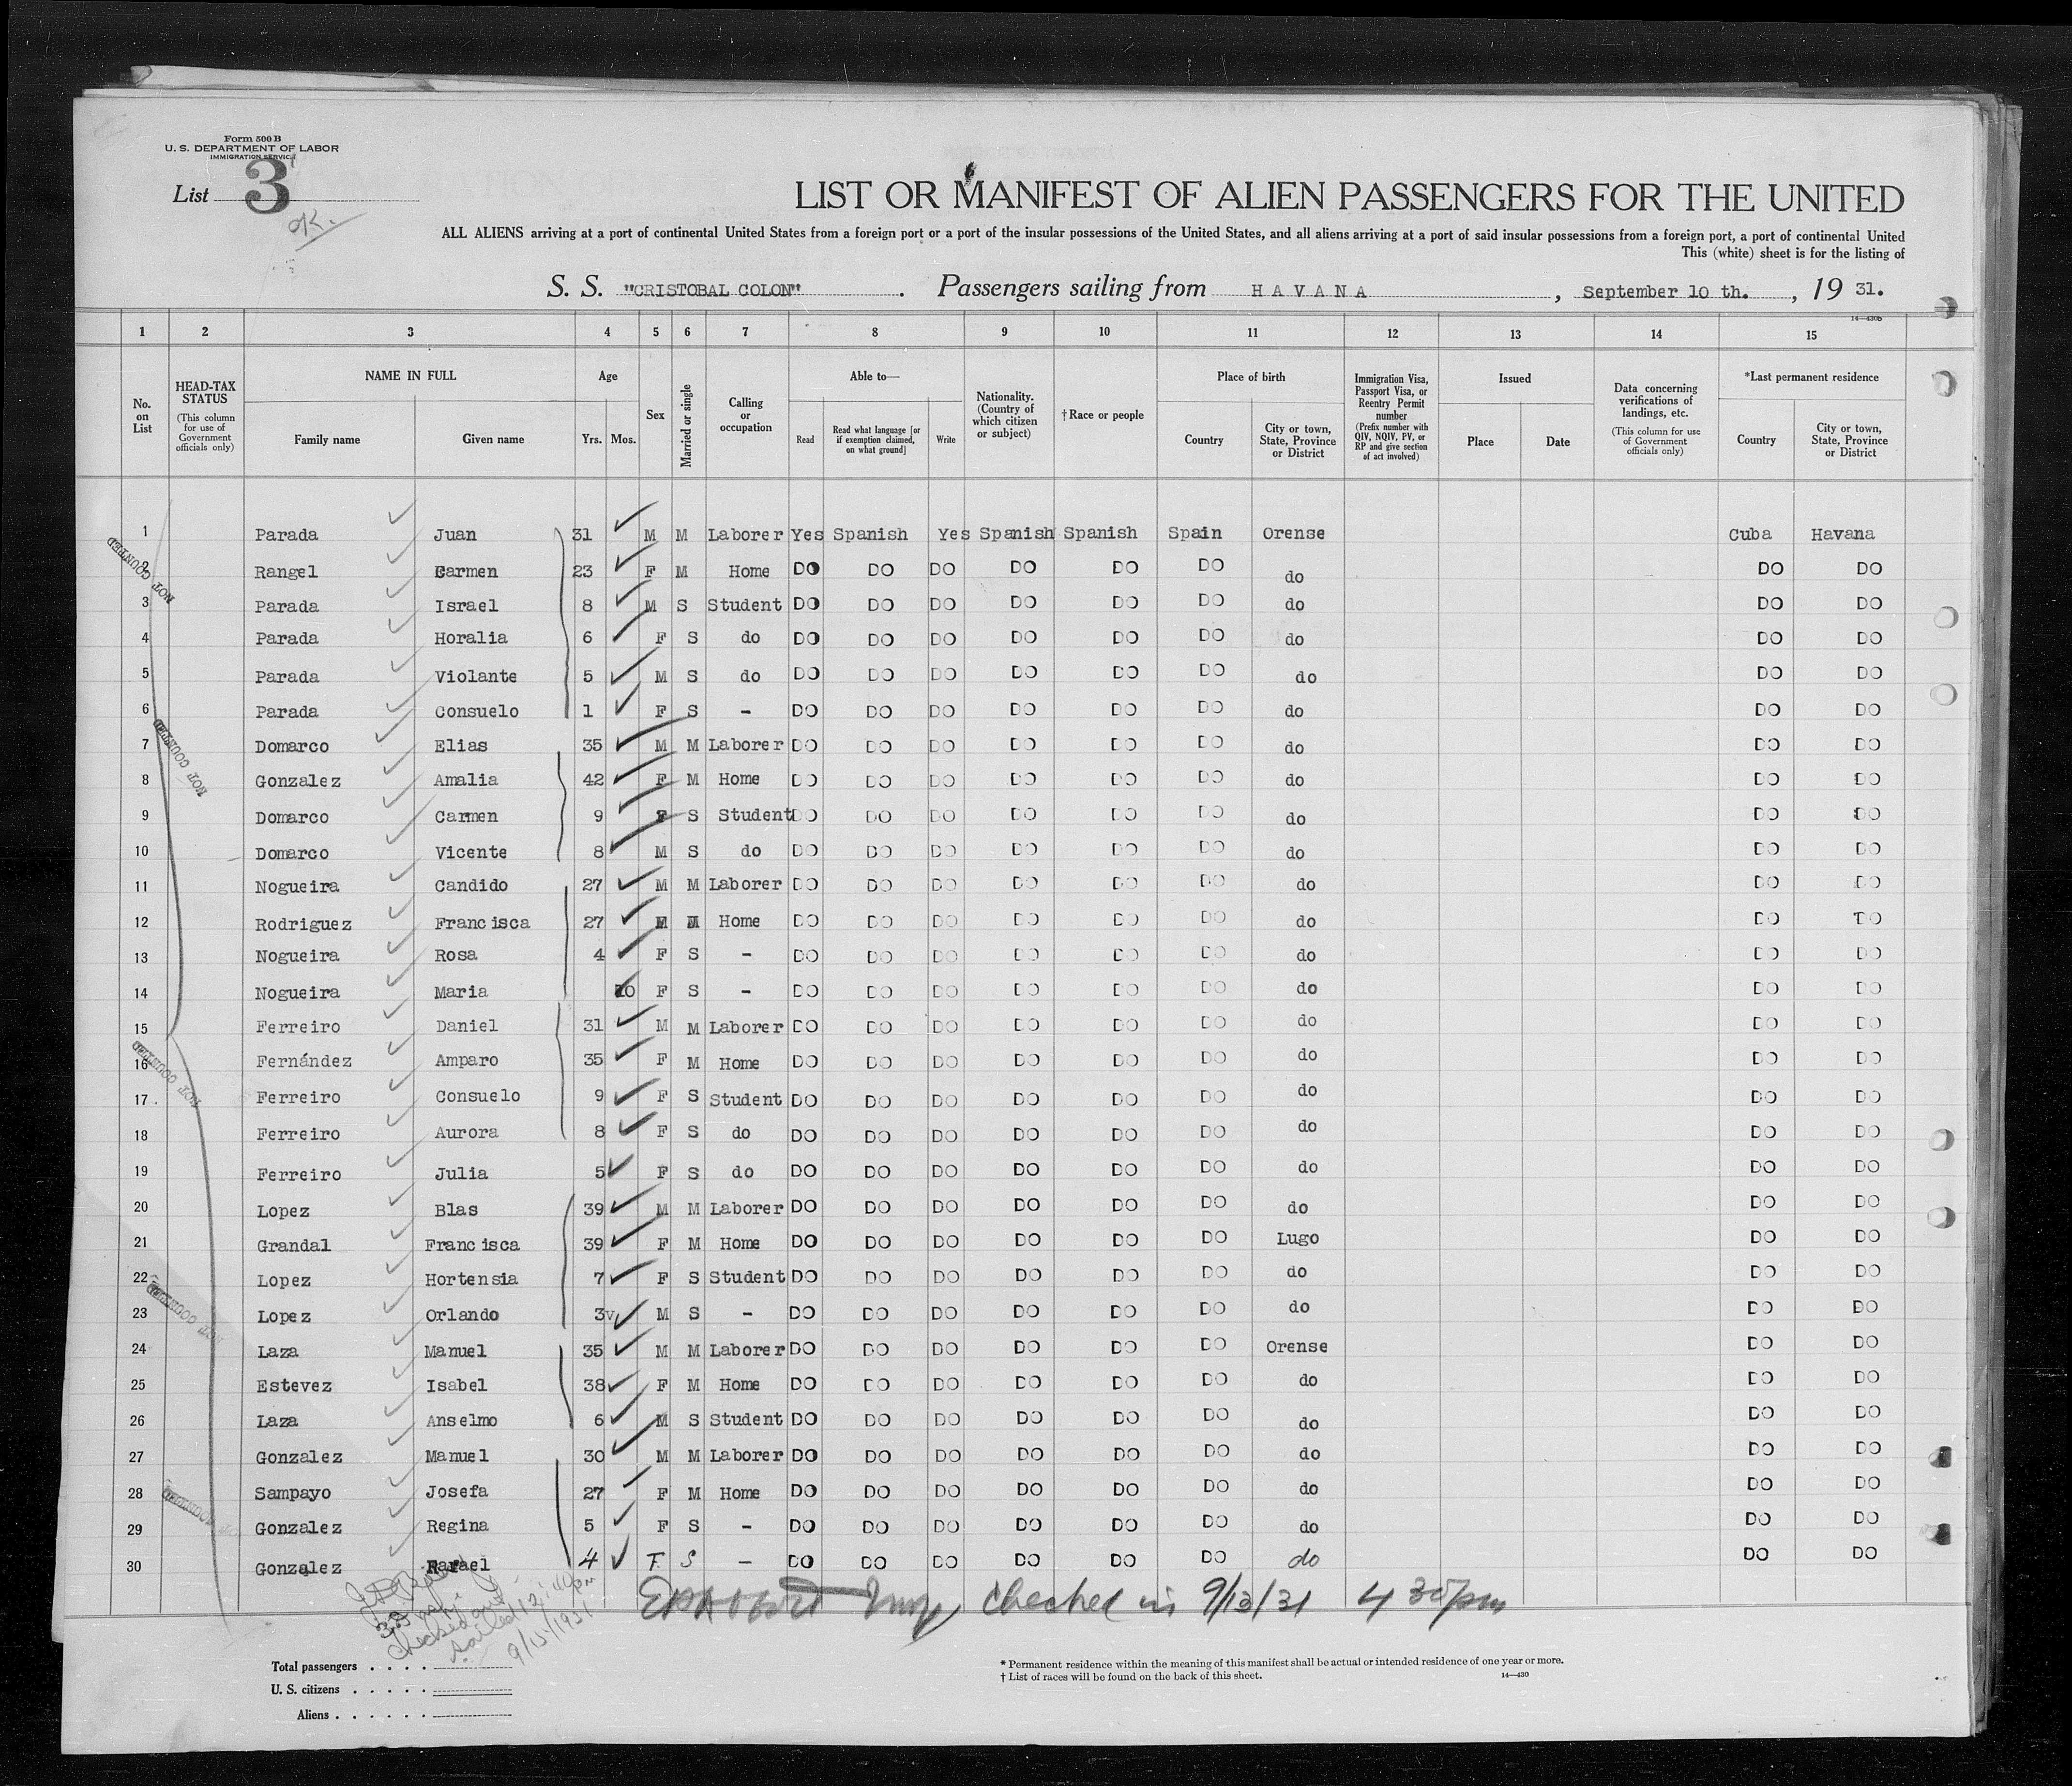 Form 500 B
U. S. DEPARTMENT OF LABOR
IMMIGRATION SERVICE
List 3
OK.
LIST OR MANIFEST OF ALIEN PASSENGERS FOR THE UNITED
ALL ALIENS arriving at a port of continental United States from a foreign port or a port of the insular possessions of the United States, and all aliens arriving at a port of said insular possessions from a foreign port, a port of continental United
This (white) sheet is for the listing of
S. S. "CRISTOBAL COLON". Passengers sailing from HAVANA, September 10 th., 19 31.
14—430B
1 2 3 4 5 6 7 8 9 10 11 12 13 14 15
No. on List
HEAD-TAX STATUS (This column for use of Government officials only)
NAME IN FULL Family name Given name
Age Yrs. Mos.
Sex
Married or single
Calling or occupation
Able to— Read Read what language [or if exemption claimed, on what ground] Write
Nationality. (Country of which citizen or subject)
†Race or people
Place of birth Country City or town, State, Province or District
Immigration Visa, Passport Visa, or Reentry Permit number (Prefix number with QIV, NQIV, PV, or RP and give section of act involved)
Issued Place Date
Data concerning verifications of landings, etc. (This column for use of Government officials only)
*Last permanent residence Country City or town, State, Province or District
1 Parada Juan 31 M M Laborer Yes Spanish Yes Spanish Spanish Spain Orense Cuba Havana
2 Rangel Carmen 23 F M Home DO DO DO DO DO DO do DO DO
3 Parada Israel 8 M S Student DO DO DO DO DO DO do DO DO
4 Parada Horalia 6 F S do DO DO DO DO DO DO do DO DO
5 Parada Violante 5 M S do DO DO DO DO DO DO do DO DO
6 Parada Consuelo 1 F S - DO DO DO DO DO DO do DO DO
7 Domarco Elias 35 M M Laborer DO DO DO DO DO DO do DO DO
8 Gonzalez Amalia 42 F M Home DO DO DO DO DO DO do DO DO
9 Domarco Carmen 9 F S Student DO DO DO DO DO DO do DO DO
10 Domarco Vicente 8 M S do DO DO DO DO DO DO do DO DO
11 Nogueira Candido 27 M M Laborer DO DO DO DO DO DO do DO DO
12 Rodriguez Francisca 27 M M Home DO DO DO DO DO DO do DO DO
13 Nogueira Rosa 4 F S - DO DO DO DO DO DO do DO DO
14 Nogueira Maria 10 F S - DO DO DO DO DO DO do DO DO
15 Ferreiro Daniel 31 M M Laborer DO DO DO DO DO DO do DO DO
16 Fernández Amparo 35 F M Home DO DO DO DO DO DO do DO DO
17 Ferreiro Consuelo 9 F S Student DO DO DO DO DO DO do DO DO
18 Ferreiro Aurora 8 F S do DO DO DO DO DO DO do DO DO
19 Ferreiro Julia 5 F S do DO DO DO DO DO DO do DO DO
20 Lopez Blas 39 M M Laborer DO DO DO DO DO DO do DO DO
21 Grandal Francisca 39 F M Home DO DO DO DO DO DO Lugo DO DO
22 Lopez Hortensia 7 F S Student DO DO DO DO DO DO do DO DO
23 Lopez Orlando 3 M S - DO DO DO DO DO DO do DO DO
24 Laza Manuel 35 M M Laborer DO DO DO DO DO DO Orense DO DO
25 Estevez Isabel 38 F M Home DO DO DO DO DO DO do DO DO
26 Laza Anselmo 6 M S Student DO DO DO DO DO DO do DO DO
27 Gonzalez Manuel 30 M M Laborer DO DO DO DO DO DO do DO DO
28 Sampayo Josefa 27 F M Home DO DO DO DO DO DO do DO DO
29 Gonzalez Regina 5 F S - DO DO DO DO DO DO do DO DO
30 Gonzalez Rafael 4 F. S - DO DO DO DO DO DO do DO DO
NOT COUNTED
NOT COUNTED
NOT COUNTED
NOT COUNTED
NOT COUNTED
checked in 9/13/31 4 30 pm
checked out
sailed 12:40 pm
9/15/1931
Total passengers
U. S. citizens
Aliens
* Permanent residence within the meaning of this manifest shall be actual or intended residence of one year or more.
† List of races will be found on the back of this sheet.
14—430